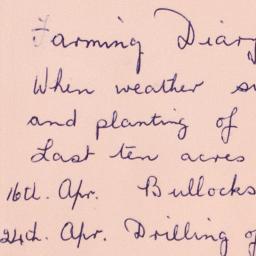 Farming Diary
When weather su
and planting of
Last ten acres
16th. Apr. Bullocks
24th. Apr. Drilling of